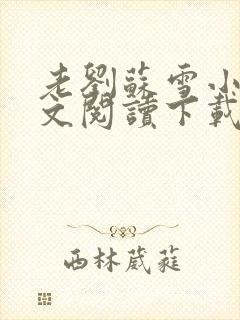 老劉蘇雪小
文閱讀下載
西林葳蕤